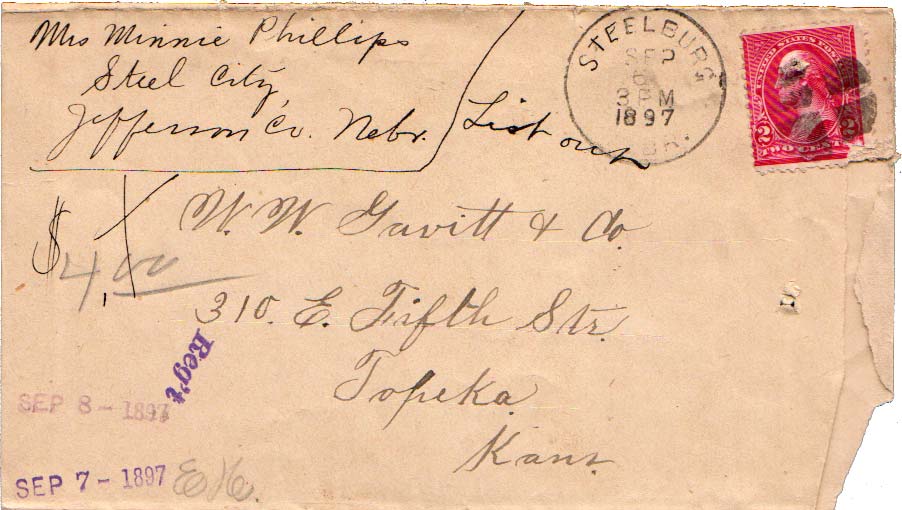 Mrs Minnie Phillips
Steel City,
Jefferson Co. Nebr.
List out
STEELBURG
SEP
6
3 PM
1897
BR.
UNITED STATES POST
2 2
TWO CENT
$4.00
W. W. Gavitt & Co.
310. E. Fifth Str.
Topeka
Kans
Reg't
SEP 8 - 1897
SEP 7 - 1897